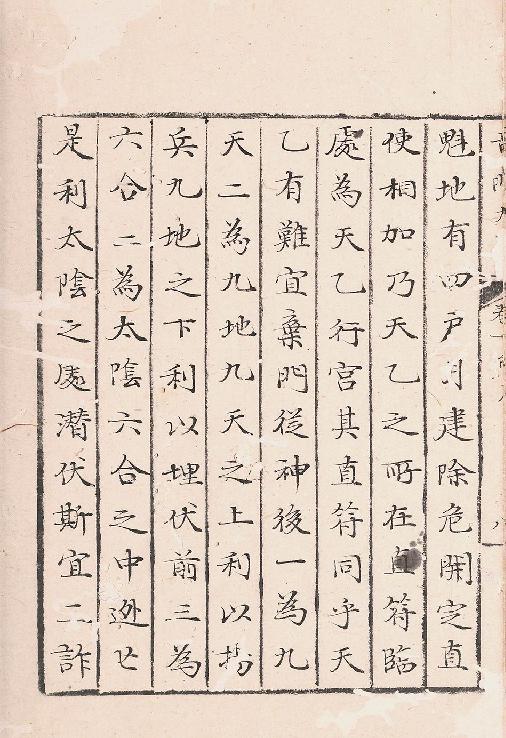 魁地有四户月建除危開定直
使相加乃天乙之所在直符臨
處為天乙行宮其直符同乎天
乙有難宜棄門從神後一為九
天二為九地九天之上利以揚
兵九地之下利以埋伏前三為
六合二為太陰六合之中遯亡
是利太陰之處潜伏斯宜二詐